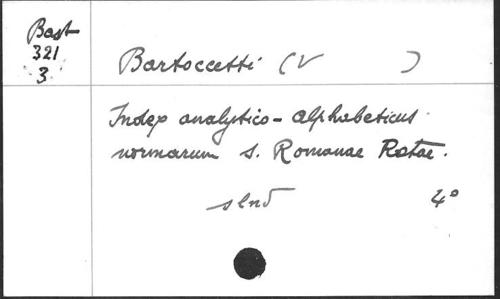 Bast
321
3.
Bartoccetti (V )
Index analytico-alphabeticus
normarum s. Romanae Rotae.
slnd 4°